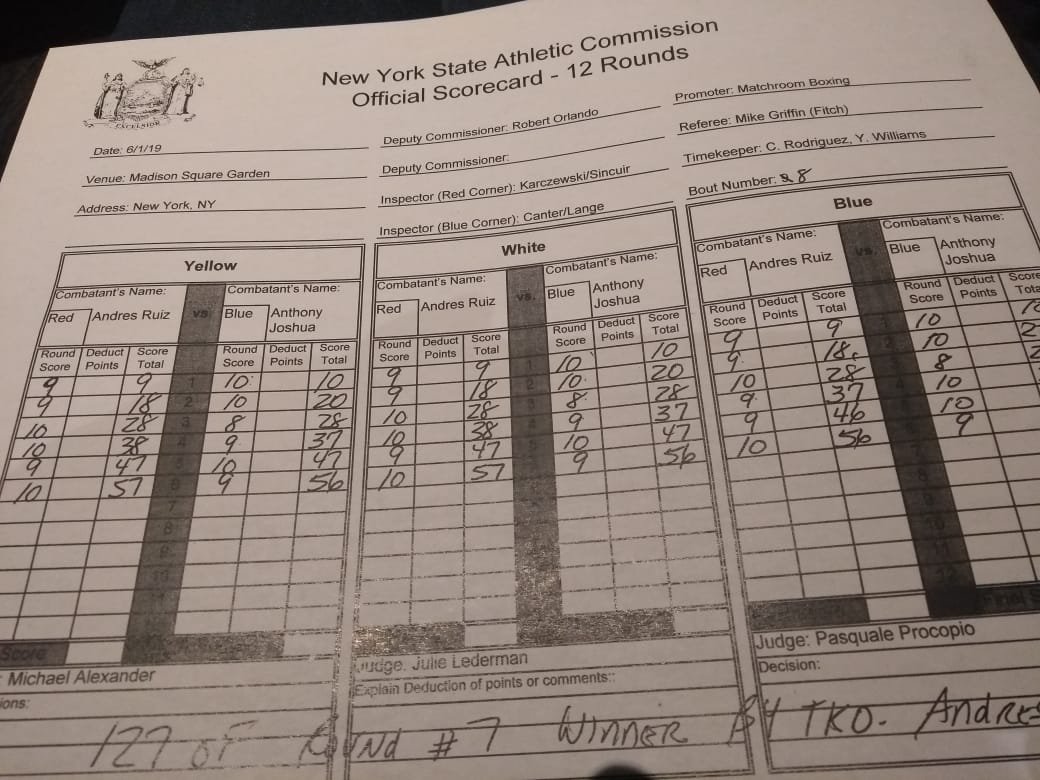 New York State Athletic Commission
Official Scorecard - 12 Rounds
EXCELSIOR
Date: 6/1/19
Venue: Madison Square Garden
Address: New York, NY
Deputy Commissioner: Robert Orlando
Deputy Commissioner:
Inspector (Red Corner): Karczewski/Sincuir
Inspector (Blue Corner): Canter/Lange
Promoter: Matchroom Boxing
Referee: Mike Griffin (Fitch)
Timekeeper: C. Rodriguez, Y. Williams
Bout Number: 8
Yellow
Combatant's Name: vs. Combatant's Name:
Red Andres Ruiz Blue Anthony
Joshua
Round Deduct Score Round Deduct Score
Score Points Total Score Points Total
9 9 1 10 10
9 18 2 10 20
10 28 3 8 28
10 38 4 9 37
9 47 5 10 47
10 57 6 9 56
7
8
9
10
11
Score
Michael Alexander
ions:
White
Combatant's Name: vs. Combatant's Name:
Red Andres Ruiz Blue Anthony
Joshua
Round Deduct Score Round Deduct Score
Score Points Total Score Points Total
9 9 1 10 10
9 18 2 10 20
10 28 3 8 28
10 38 4 9 37
9 47 10 47
10 57 9 56
Judge: Julie Lederman
Explain Deduction of points or comments::
Blue
Combatant's Name: vs. Combatant's Name:
Red Andres Ruiz Blue Anthony
Joshua
Round Deduct Score Round Deduct Score
Score Points Total Score Points Tota
9 9 10
9 18 10 2
10 28 8 2
9 37 10
9 46 10
10 56 9
Final S
Judge: Pasquale Procopio
Decision:
127 OF ROUND # 7 WINNER BY TKO. ANDRES